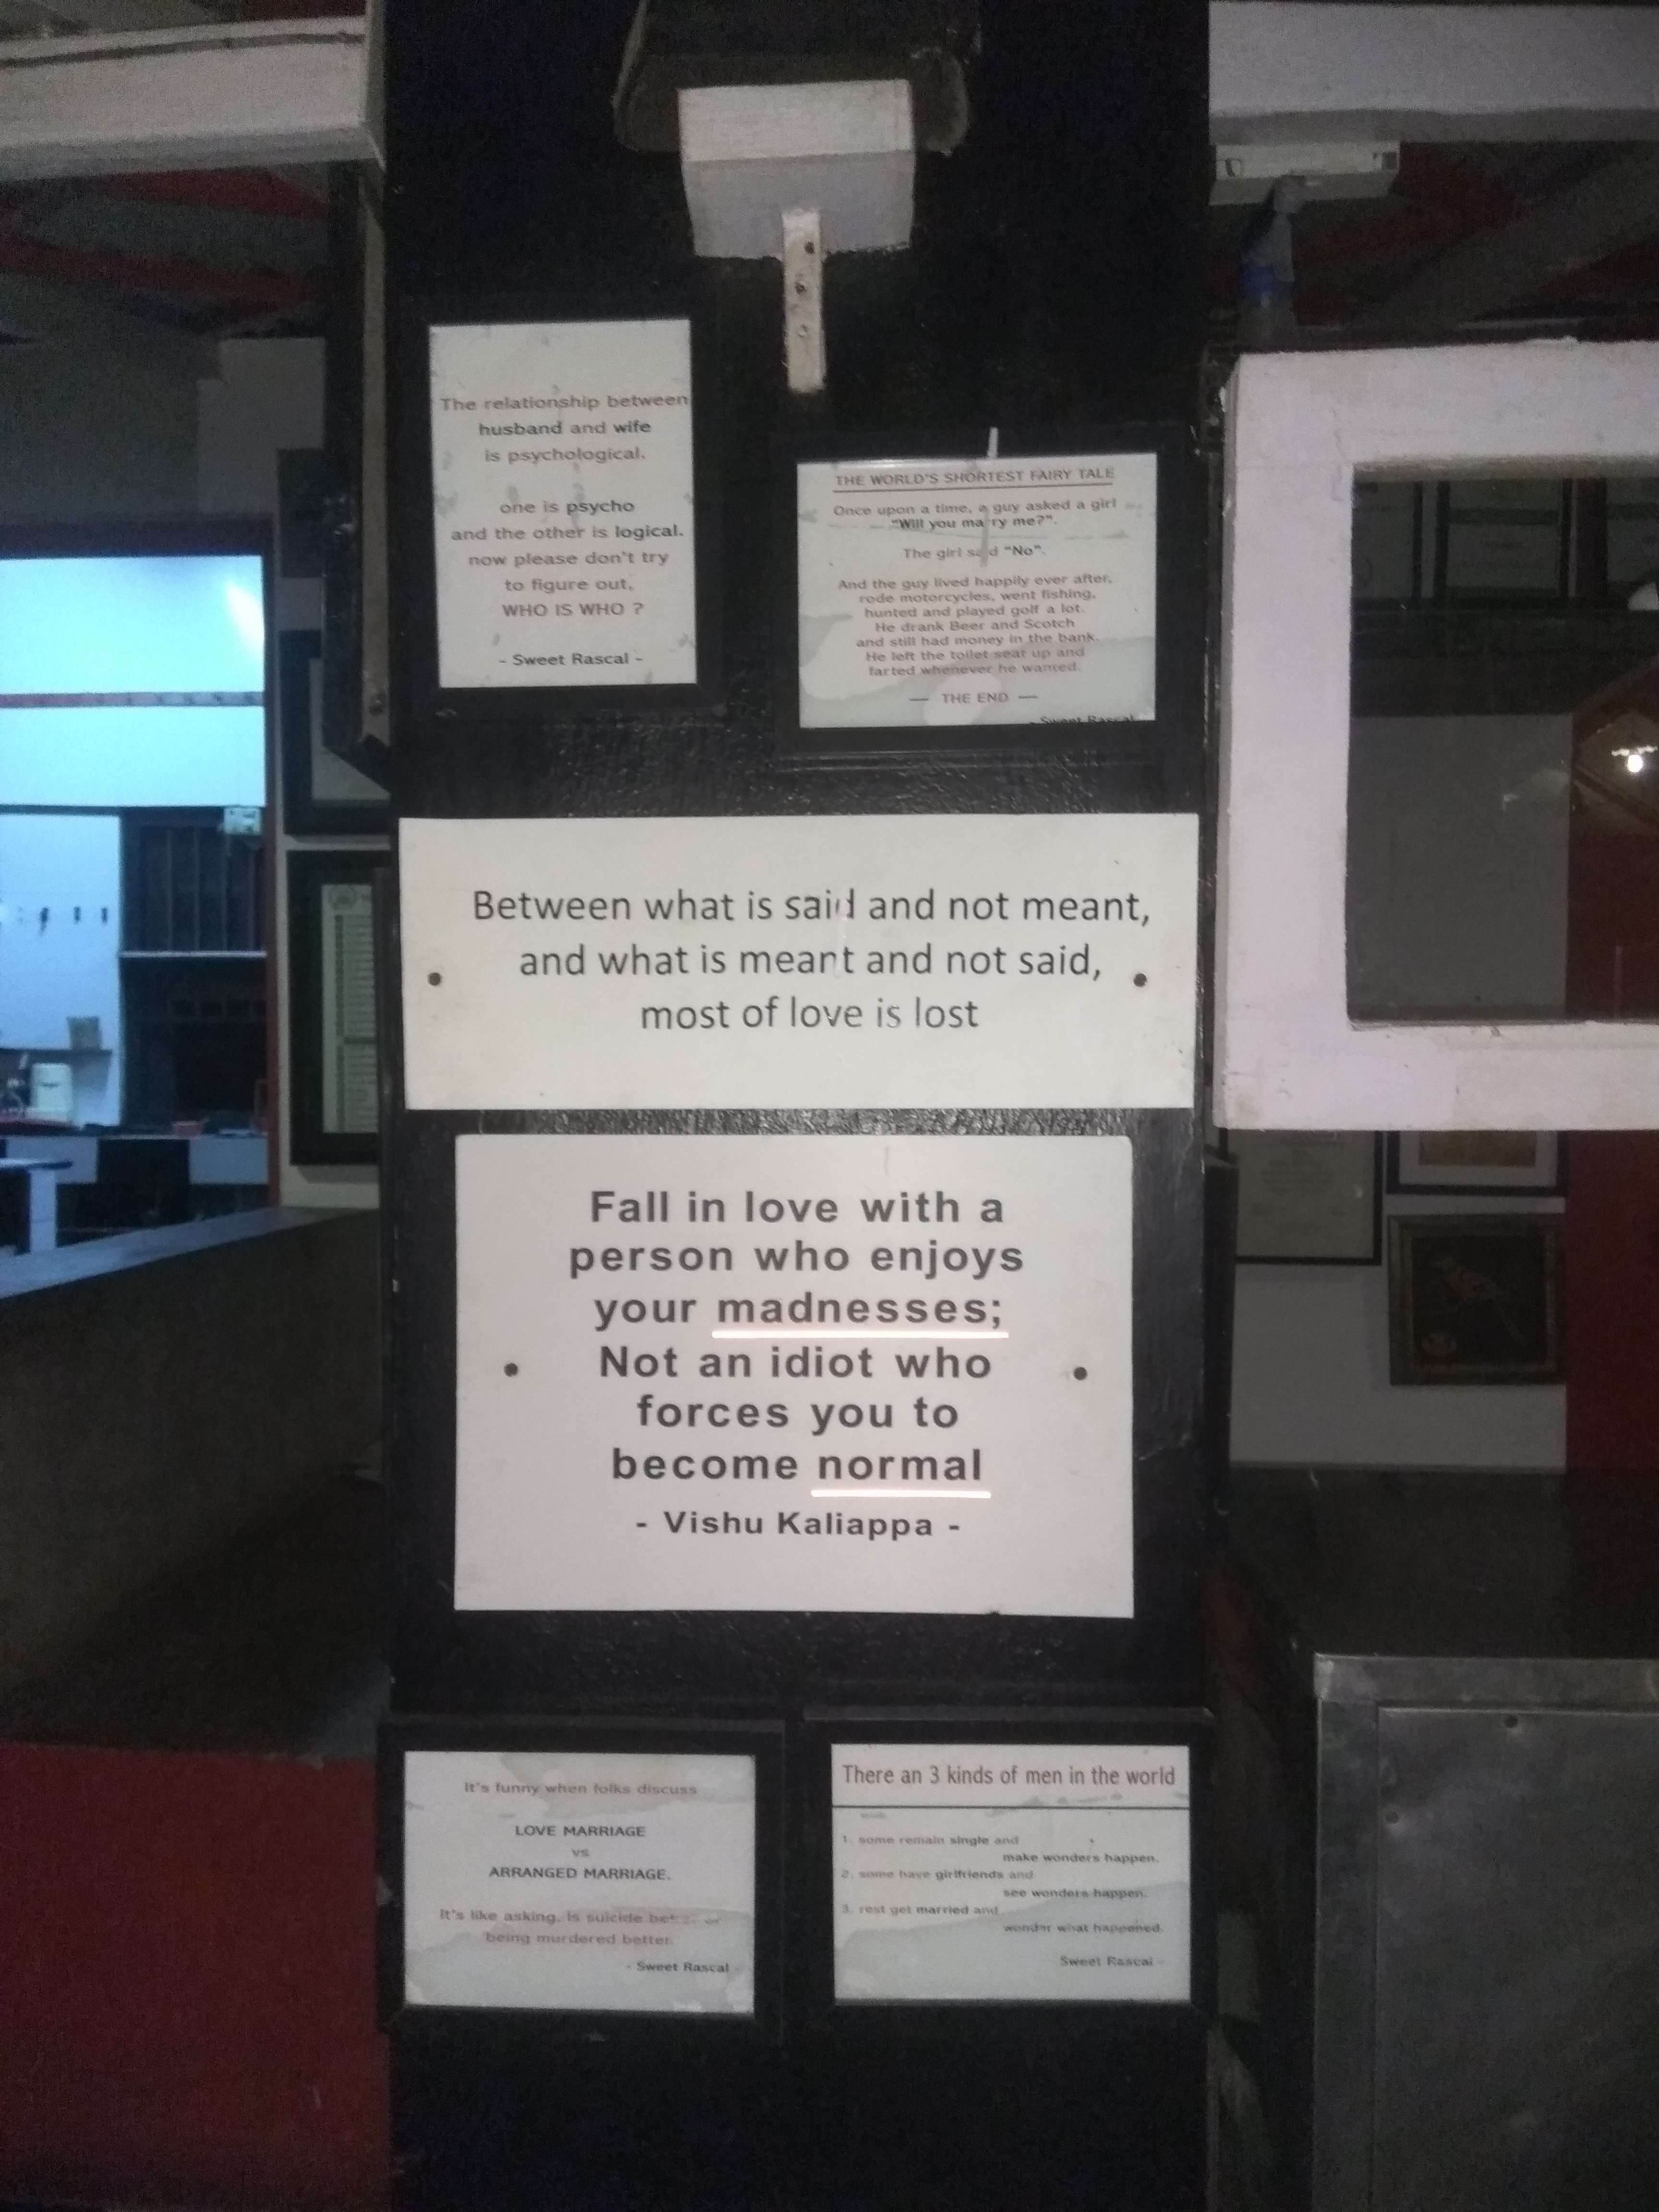 The relationship between
husband and wife
is psychological.
one is psycho
and the other is logical.
now please don't try
to figure out,
WHO IS WHO ?
- Sweet Rascal -
THE WORLD'S SHORTEST FAIRY TALE
Once upon a time, a guy asked a girl
"Will you marry me?".
The girl said "No".
And the guy lived happily ever after,
rode motorcycles, went fishing,
hunted and played golf a lot.
He drank Beer and Scotch
and still had money in the bank.
He left the toilet seat up and
farted whenever he wanted.
— THE END —
- Sweet Rascal
Between what is said and not meant,
and what is meant and not said,
most of love is lost
Fall in love with a
person who enjoys
your madnesses;
Not an idiot who
forces you to
become normal
- Vishu Kaliappa -
It's funny when folks discuss
LOVE MARRIAGE
vs
ARRANGED MARRIAGE.
It's like asking, is suicide
being murdered better.
- Sweet Rascal -
There an 3 kinds of men in the world
1. some remain single and
make wonders happen.
2. some have girlfriends and
see wonders happen.
3. rest get married and
wonder what happened.
Sweet Rascal -